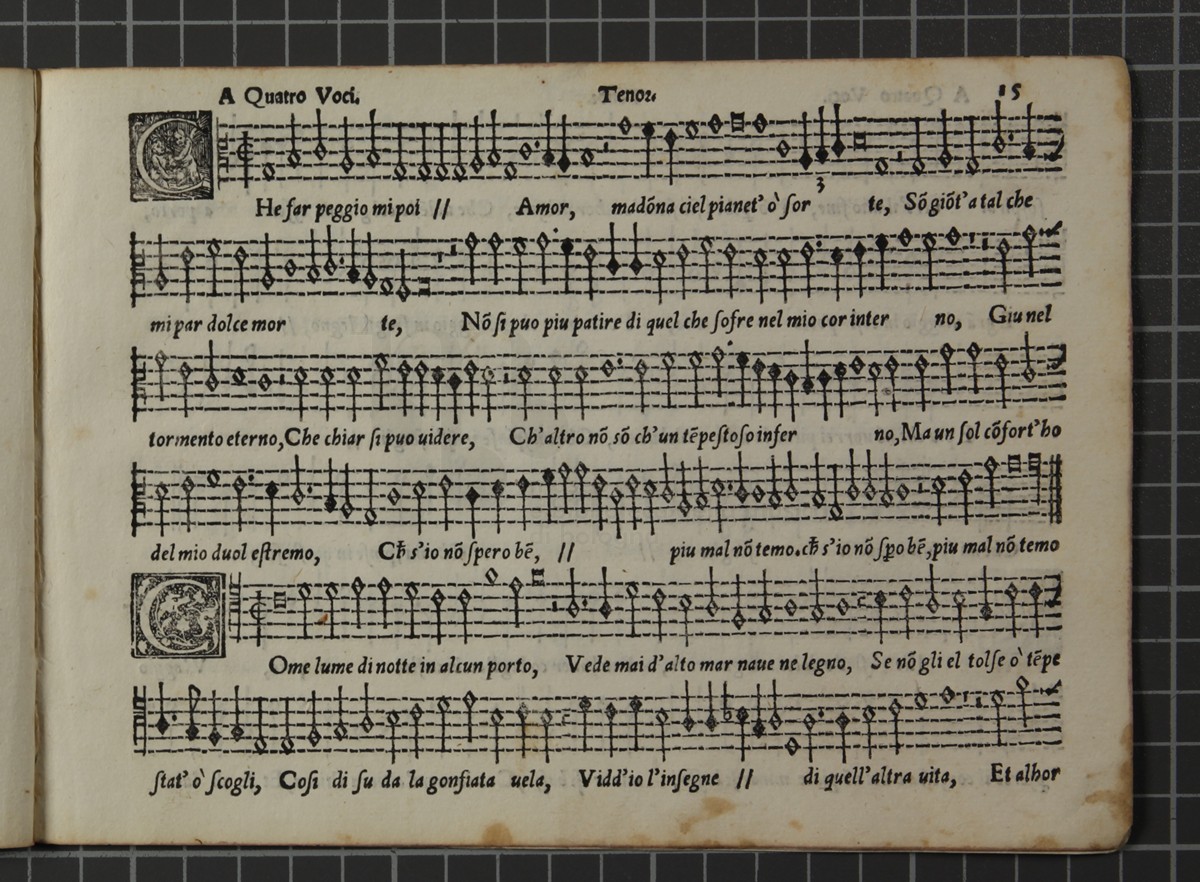 A Quatro Voci. Tenor. 15
C
He far peggio mi poi // Amor, madõna ciel pianet' ò ſor te, Sõ giõt' a tal che
3
mi par dolce mor te, Nõ ſi puo piu patire di quel che ſofre nel mio cor inter no, Giu nel
tormento eterno, Che chiar ſi puo uidere, Ch'altro nõ sõ ch'un tẽpeſtoſo infer no, Ma un ſol cõfort' ho
del mio duol eſtremo, Ch̃ s'io nõ ſpero bẽ, // piu mal nõ temo. ch̃ s'io nõ ſꝑo bẽ, piu mal nõ temo
C
Ome lume di notte in alcun porto, Vede mai d'alto mar naue ne legno, Se nõ gli el tolſe ò tẽpe
ſtat' ò ſcogli, Coſi di ſu da la gonfiata uela, Vidd'io l'inſegne // di quell'altra uita, Et alhor